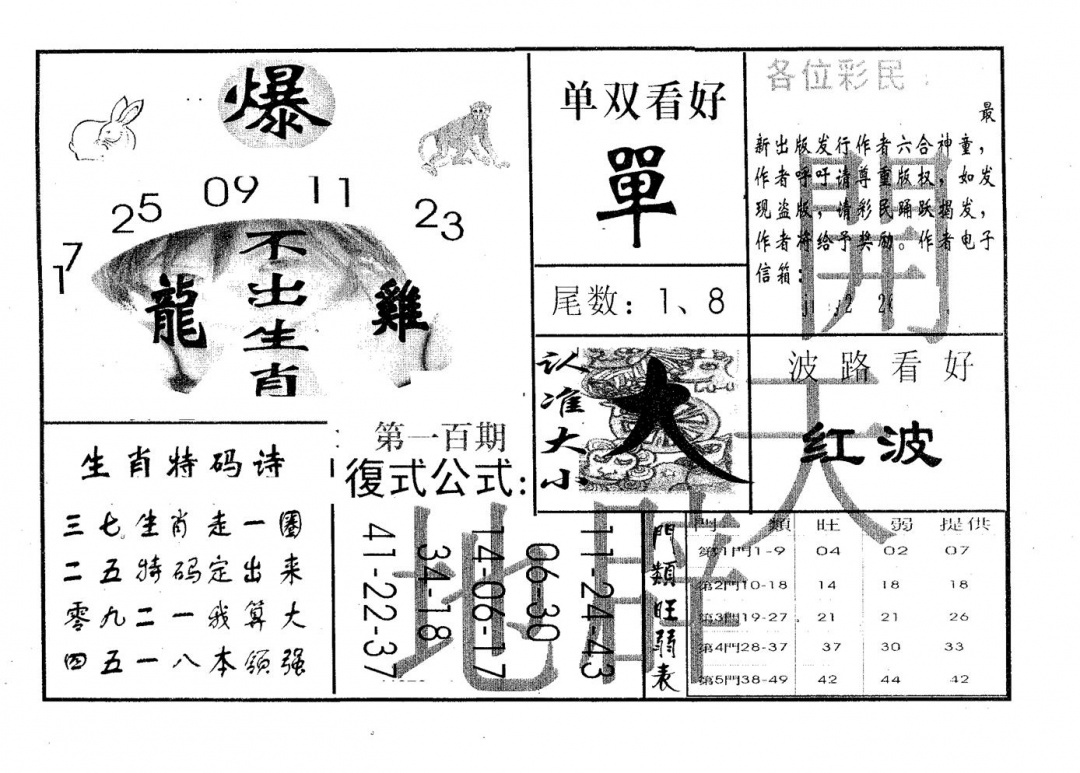 爆
25 09 11 23
17
不出生肖
龍
雞
单双看好
單
尾数：1、8
各位彩民：
最
新出版发行作者六合神童，
作者呼吁请尊重版权，如发
现盗版，请彩民踊跃揭发，
作者将给予奖励。作者电子
信箱：
開
认准大小
大
波路看好
红波
天
生肖特码诗
三七生肖走一圈
二五特码定出来
零九二一我算大
四五一八本领强
第一百期
復式公式：
41-22-37
34-18
14-06-17
06-30
11-24-43
地
門類旺弱表
門 類 旺 弱 提供
第1門1-9 04 02 07
第2門10-18 14 18 18
第3門19-27 21 21 26
第4門28-37 37 30 33
第5門38-49 42 44 42